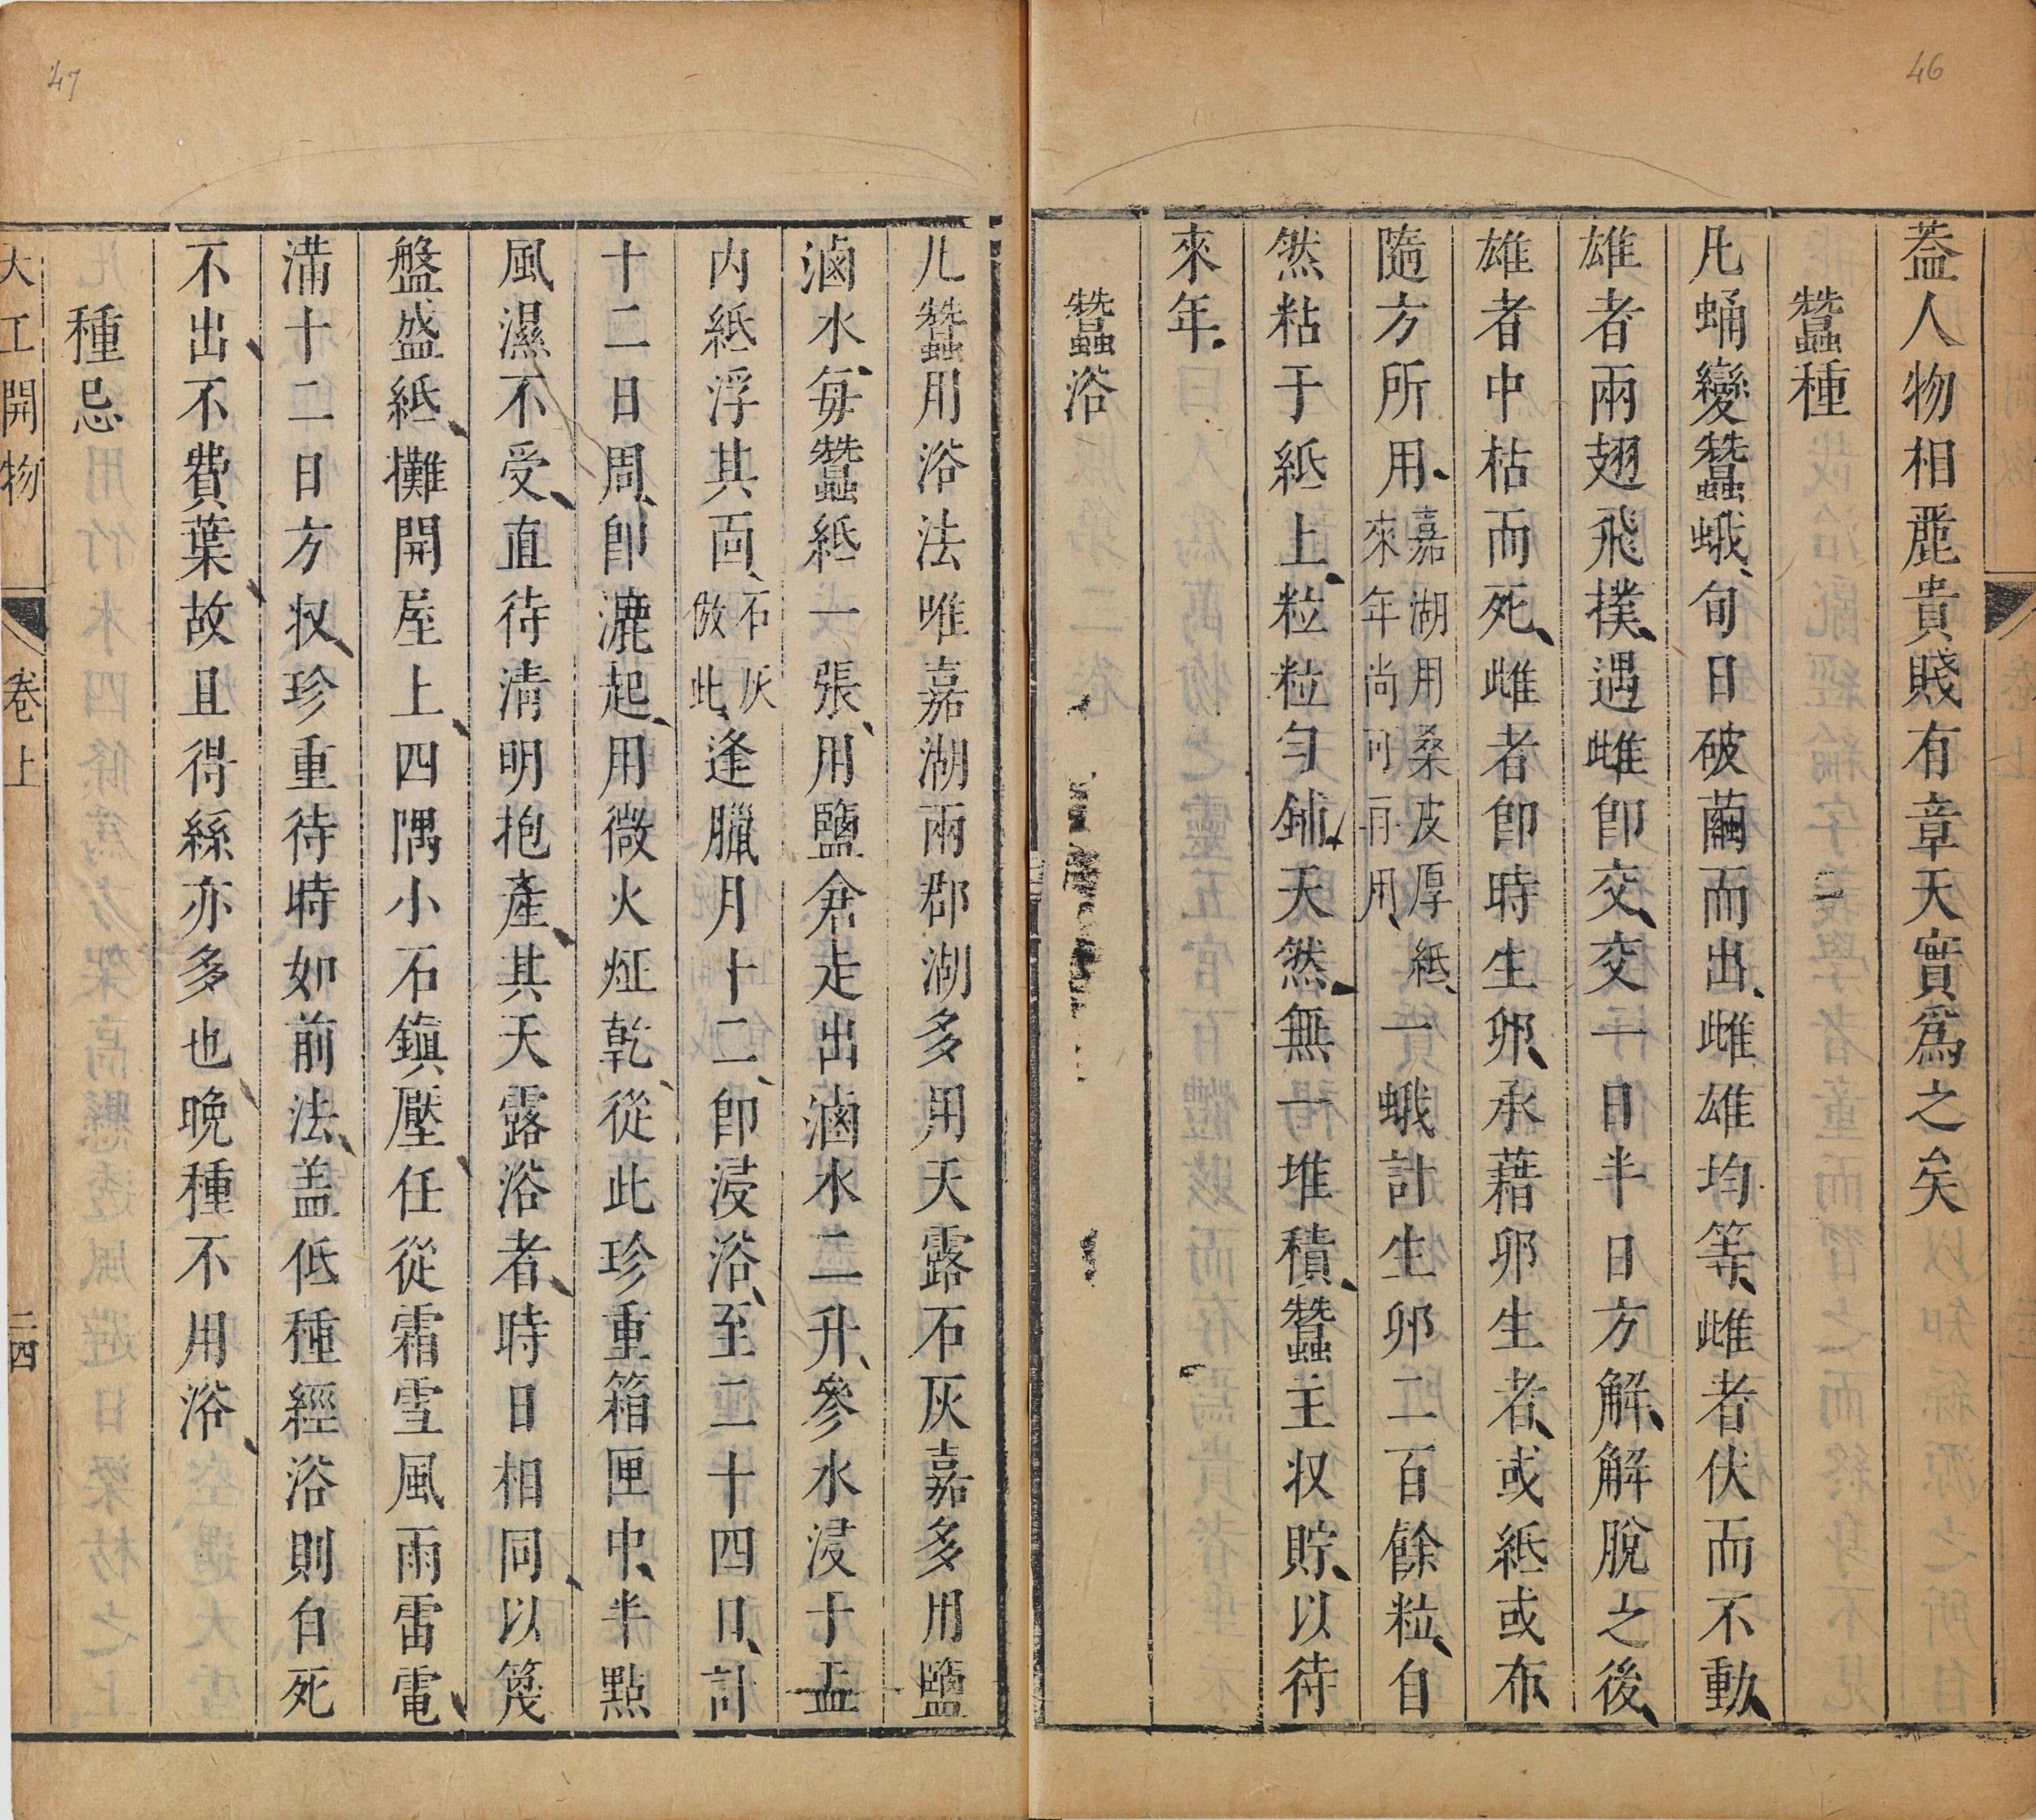 46
蓋人物相麗貴賤有章天實爲之矣
蠶種
凡蛹變蠶蛾、旬日破繭而出、雌雄均等、雌者伏而不動、
雄者兩翅飛撲、遇雌即交、交一日半日方解、解脫之後、
雄者中枯而死、雌者即時生卵、承藉卵生者、或紙或布、
隨方所用、嘉湖用桑皮厚紙、來年尚可再用、一蛾計生卵二百餘粒、自
然粘于紙上、粒粒勻鋪、天然、無一堆積、蠶主収貯、以待
來年、
蠶浴
47
凡蠶用浴法唯嘉湖兩郡湖多用天露石灰嘉多用鹽
滷水、每蠶紙一張、用鹽倉走出滷水二升、參水浸于盂
内紙浮其面、石灰倣此、逢臘月十二、即浸浴、至二十四日、計
十二日周、即漉起、用微火烘乾、從此珍重箱匣中、半點
風濕不受、直待清明抱產、其天露浴者、時日相同、以篾
盤盛紙、攤開屋上、四隅小石鎮壓、任從霜雪風雨雷電、
滿十二日方収、珍重待時如前法、盖低種經浴則自死
不出、不費葉、故且得絲亦多也、晚種不用浴、
種忌
天工開物
卷上
二四